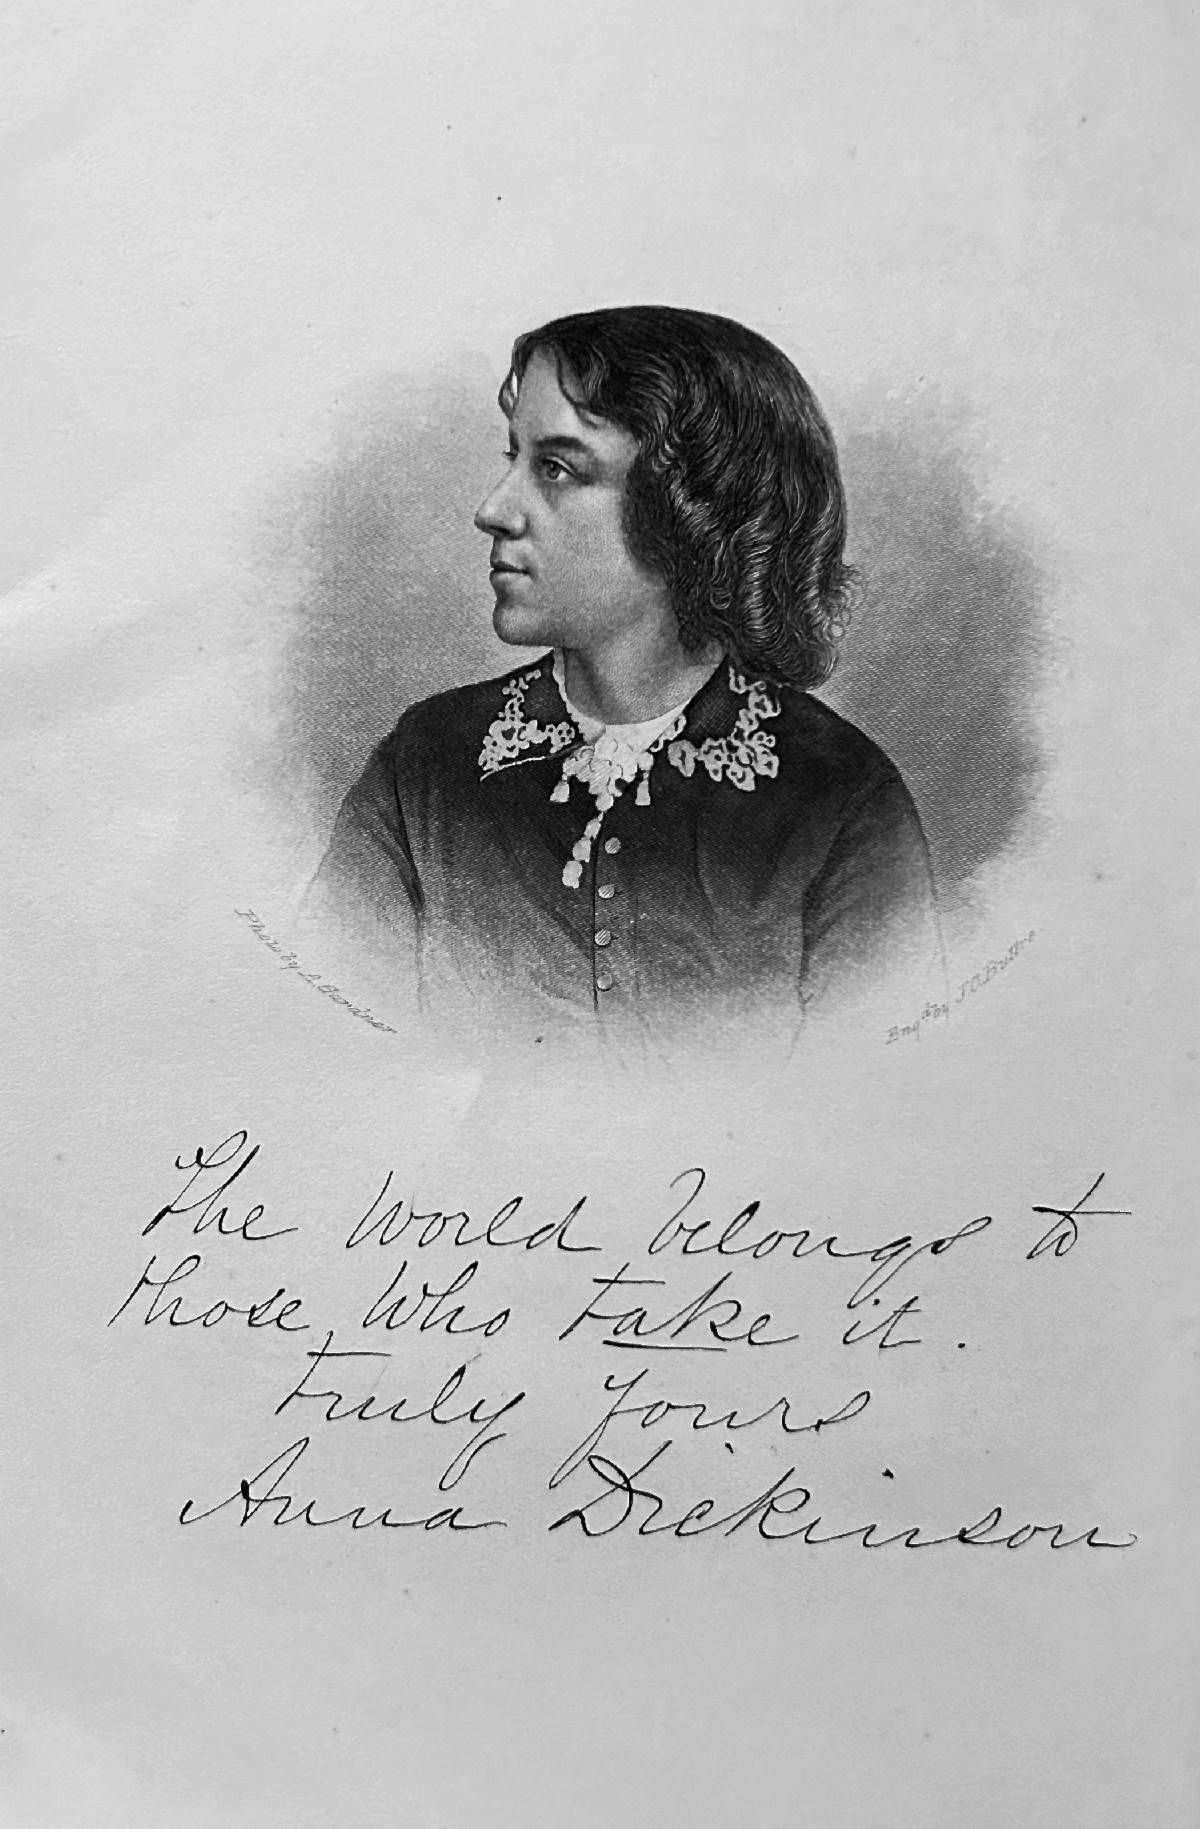 Photo by A. Gardner
Engd. by J.C. Buttre
The World belongs to
those, Who take it.
Truly Yours
Anna Dickinson